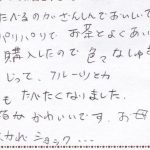 たべるのがざんしんでおいしいで
パリパリで お茶とよくあい
購入したので 色々なしゅる
じって、フルーツとか
も たべたくなりました。
かわいいです。お母
ショック・・・